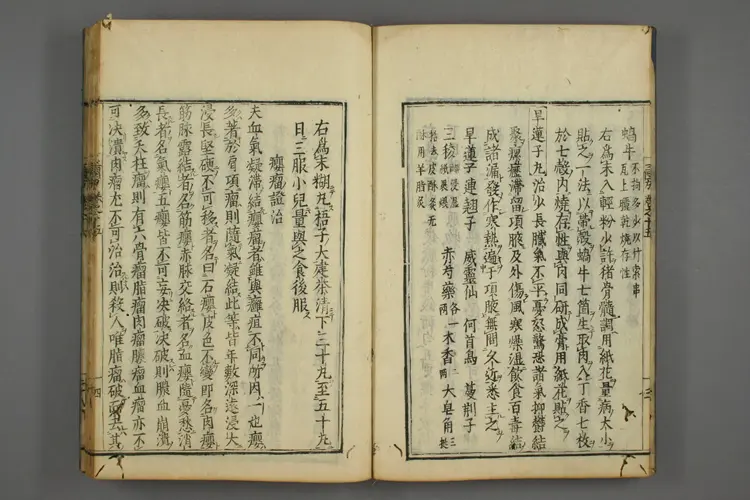 蝸牛 不拘多少以竹索串
瓦上晒乾燒存性
右爲末入輕粉少許猪骨髓調用紙花量病大小
貼之一法以帶殼蝸牛七箇生取肉入丁香七枚
於七殼內燒存性與肉同研成膏用紙花貼之
皁蓮子丸治少長臟氣不平憂怒驚恐諸氣抑鬱結
聚瘰癧滯留項腋及外傷風寒燥濕飲食百毒結
成諸漏發作寒熱遍于項腋無問久近悉主之
皁蓮子 連翹子 威靈仙 何首烏 蔓荊子
三稜 赤芍藥各一兩 木香二兩 大皁角三挺
去皮酥炙無
酥用羊脂炙
右爲末糊丸梧子大建茶清下三十丸至五十丸
日三服小兒量與之食後服
癭瘤證治
夫血氣凝滯結癭瘤者雖與癰疽不同所因一也癭
多著於肩項瘤則隨氣凝結此等皆年數深遠浸大
浸長堅硬不可移者名曰石癭皮色不變即名肉癭
筋脉露結者名筋癭赤脉交絡者名血癭隨憂愁消
長者名氣癭五癭皆不可妄決破決破則膿血崩潰
多致夭枉瘤則有六骨瘤脂瘤肉瘤膿瘤血瘤亦不
可決潰肉瘤尤不可治治則殺人唯脂瘤破而去其